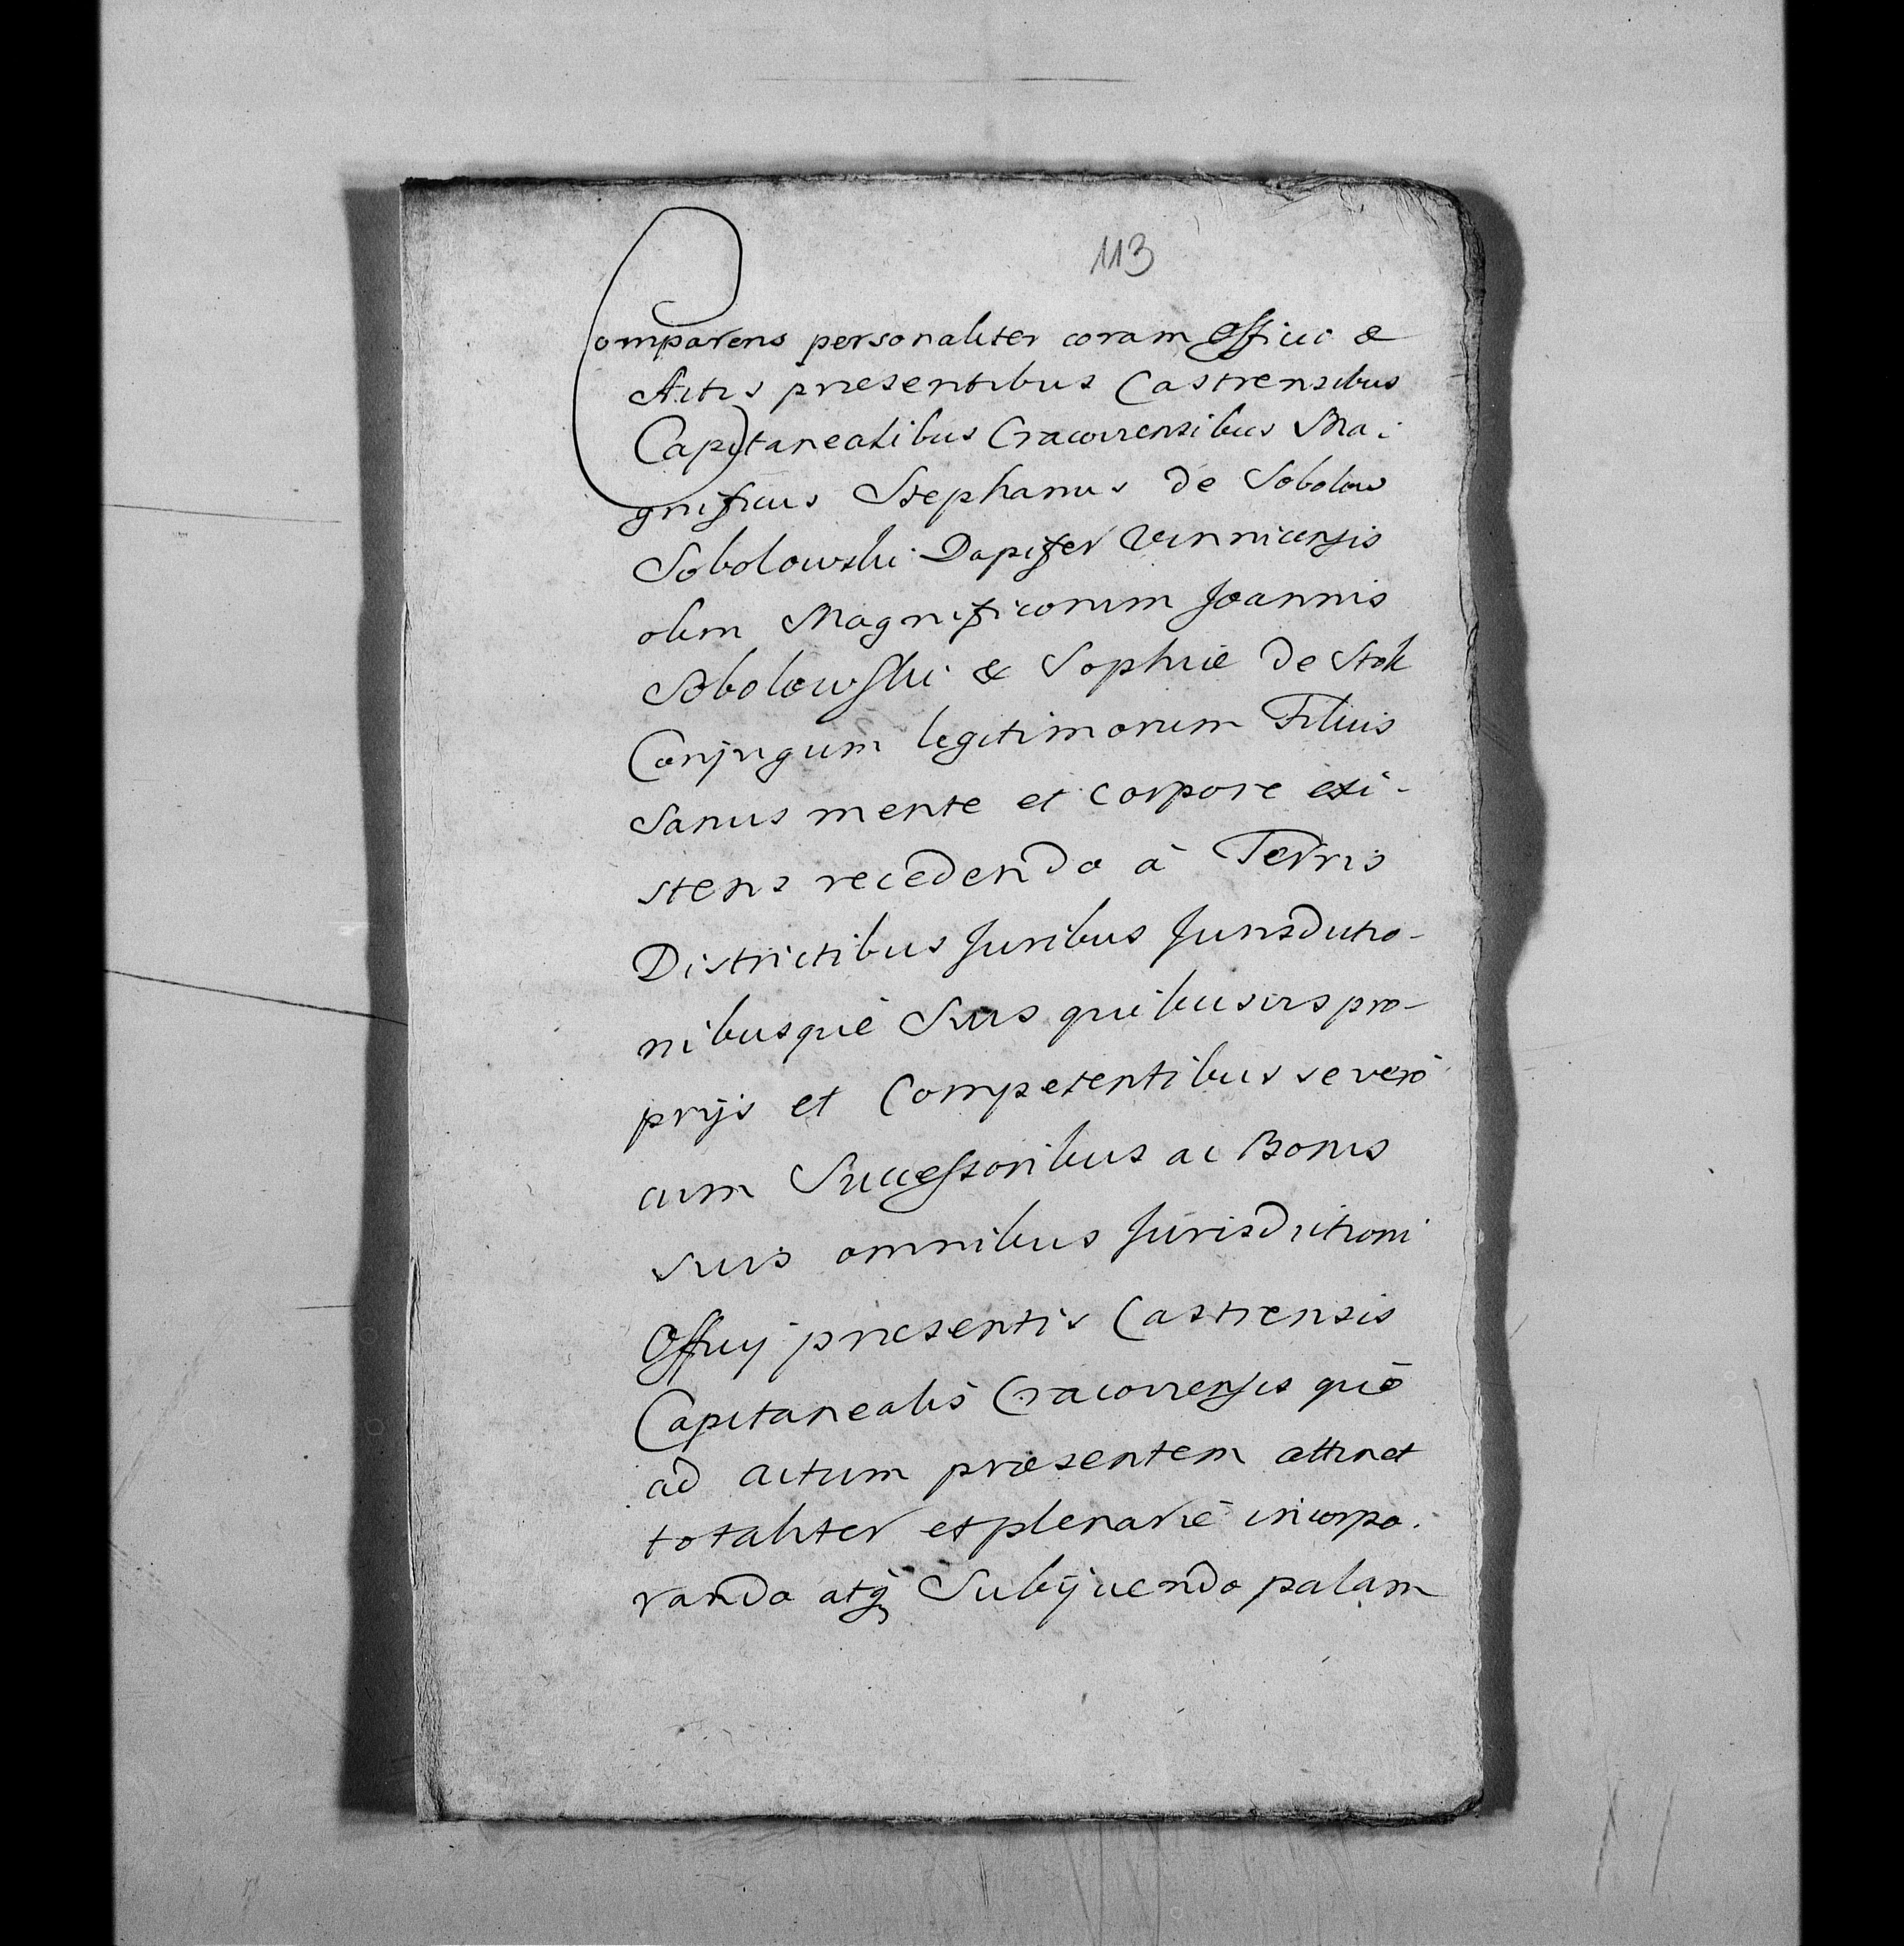 113
Comparens personaliter coram Officio &
Actis presentibus Castrensibus
Capitanealibus Cracoviensibus Ma-
gnificus Stephanus de Sobolow
Sobolowski Dapifer Vinnicensis
olim Magnificorum Joannis
Sobolowski & Sophiæ de Stok
Conjugum legitimorum Filius
Sanus mente et corpore exi-
stens recedendo à Terris
Districtibus Juribus Jurisdictio-
nibusquè Suis quibusvis pro-
prijs et Competentibus se verò
cum Successoribus ac Bonis
suis omnibus Jurisdictioni
Officij presentis Castrensis
Capitanealis Cracoviensis quò
ad actum præsentem attinet
totaliter et plenariè incorpo-
rando atq Subijciendo palam